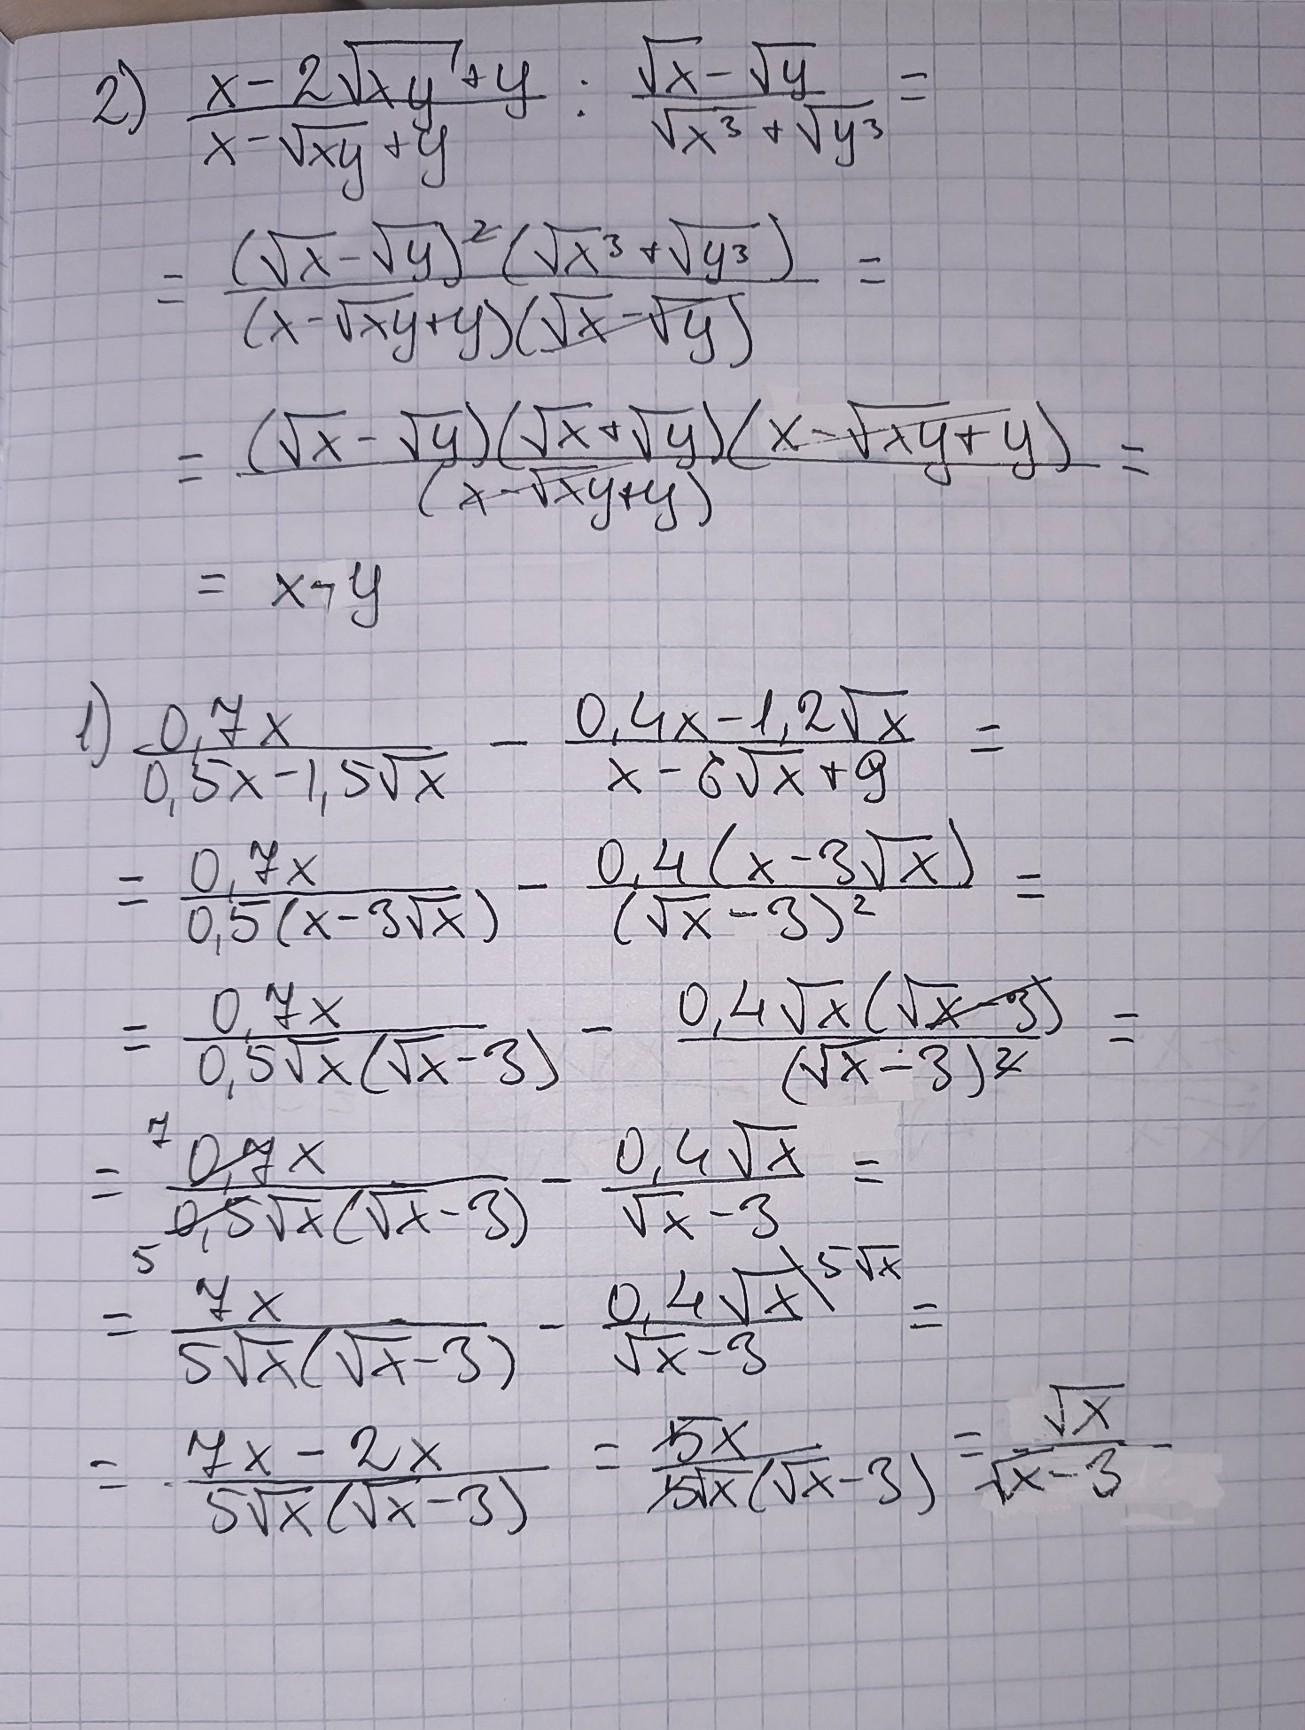 2) (x - 2√(xy) + y)/(x - √(xy) + y) : (√x - √y)/(√x³ + √y³) =
= ((√x - √y)²(√x³ + √y³))/((x - √(xy) + y)(√x - √y)) =
= ((√x - √y)(√x + √y)(x - √(xy) + y))/((x - √(xy) + y)) =
= x - y
1) (0,7x)/(0,5x - 1,5√x) - (0,4x - 1,2√x)/(x - 6√x + 9) =
= (0,7x)/(0,5(x - 3√x)) - (0,4(x - 3√x))/((√x - 3)²) =
= (0,7x)/(0,5√x(√x - 3)) - (0,4√x(√x - 3))/((√x - 3)²) =
= 7 (0,7x)/(0,5√x(√x - 3)) 5 - (0,4√x)/(√x - 3) =
= (7x)/(5√x(√x - 3)) - (0,4√x \ 5√x)/(√x - 3) =
= (7x - 2x)/(5√x(√x - 3)) = (5x)/(5√x(√x - 3)) = (√x)/(√x - 3)